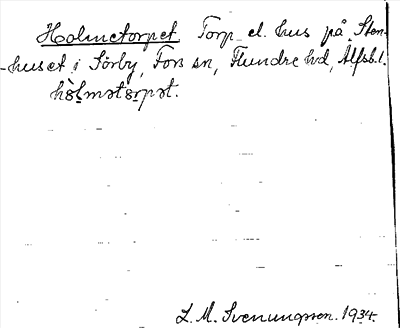 Holmetorpet Torp el. hus på Sten-
-huset i Sörby, Fors sn, Flundre hd, Älfsb. l.
hòlmətɵrpət.
L. M. Svenungsson. 1934.